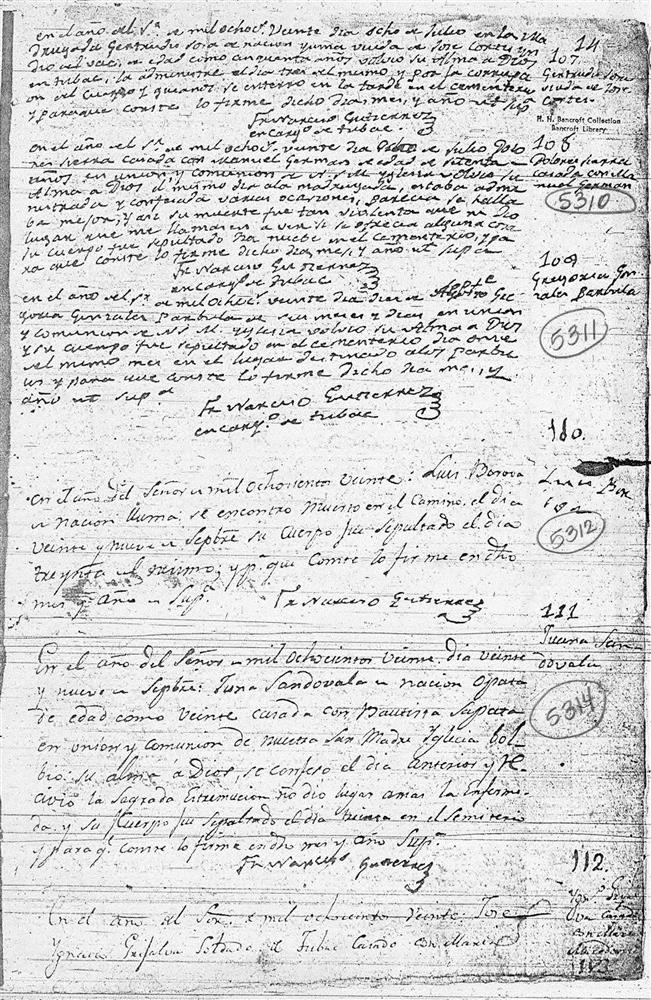 14
en el año del Sr. de mil ochoc.s Veinte dia ocho de Julio en la Ma
drugada Gertrudis Sosa de nacion yuma viuda de Jose Cortes yn
dio del vaci, de edad como cinquenta años volvio su Alma a Dios
en tubac, la administre el dia tres del mismo y por la corrupci
on del Cuerpo y gusanos se enterro en la tarde en el cementerio
y para que conste lo firme dicho dia, mes, y año ut sup.a
Fr Narciso Gutierrez
encarg.o de tubac.
107
Gertrudis Sosa
viuda de Jose
Cortes
H. H. Bancroft Collection
Bancroft Library
en el año del Sr. de mil ochoc.s veinte dia de Julio Dolo
res Sierra casada con Manuel German de edad de setenta
años, en union, y comunion de N. S. M. yglesia volvio su
Alma a Dios el mismo dia a la madrugada, estaba admi
nistrada y confesada varias ocasiones, parecia se halla
ba mejor, y asi su muerte fue tan violenta que no dio
lugar que me llamasen a ver si se ofrecia alguna cosa
su cuerpo fue sepultado dia nuebe en el cementerio, y pa
ra que conste lo firme dicho dia, mes, y año ut sup.a
Fr Narciso Gutierrez
encarg.o de tubac
108
Dolores Sierra
casada con Ma
nuel German
5310
en el año del Sr. de mil ochoc.s veinte dia diez de Agosto Gre
goria Gonzales Parbula de seis meses y dias en union
y comunion de N S. M. yglesia volvio su Alma a Dios
y su cuerpo fue sepultado en el cementerio dia once
del mismo mes en el lugar destinado a los parbu
los y para que conste lo firme dicho dia mes, y
año ut sup.a
Fr Narciso Gutierrez
encarg.o de tubac
109
Gregoria Gon
zales Parbula
5311
110.
en el año del Señor de mil ochosientos veinte: Luis
de nacion Yuma, se encontro muerto en el Camino, el dia
veinte y nueve de Septre su Cuerpo fue sepultado el dia
treynta del mismo; y p.a que Conste lo firme en dho
mes y año ut Sup.a
Fr Narciso Gutierrez
Luis
5312
111
Juana San
dovala
5314
En el año del Señor de mil ochocientos veinte, dia veinte
y nueve de Septbre: Juna Sandovala de nacion Opata
de edad como veinte casada con Bautista Sapata
en union y comunion de nuestra San Madre Yglecia bol
bio su alma á Dios, se confeso el dia anterior y re
civio la Sagrada Extremuncion no dio lugar a mas la enferme
da. y su Cuerpo fue sepultado el dia treinta en el Semiterio
y para q.e Conste lo firme en dho mes y año Sup.a
Fr Narciso Gutierrez
112.
En el año del Señor de mil ochocientos veinte Jose
Ygnacio Grijalva Soldado de Tubac Casado con Maria
113